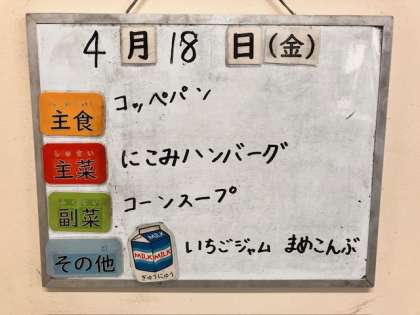 4月18日(金)
しゅしょく
主食 コッペパン
しゅさい
主菜 にこみハンバーグ
副菜 コーンスープ
その他 いちごジャム まめこんぶ
MILK
MILK MILK
ぎゅうにゅう